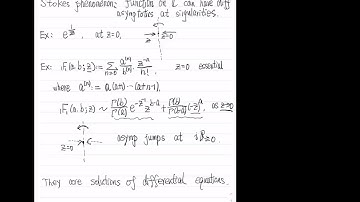 Stokes phenomenon: function on ℂ can have diff
asymptotics at singularities.
Ex: e^{1/z}, at z=0, z=0
Ex: ₁F₁(a.b;z):= ∑_{n=0} a^{(n)}/b^{(n)} z^{-n}/n!, z=0 essential
where a^{(n)} := a(a+1)⋯(a+n-1).
₁F₁(a.b;z) ~ Γ(b)/Γ(a) e^{-z^{-1}} z^{b-a} + Γ(b)/Γ(b-a) (-z)^a, as z→0
z=0 asymp jumps at iℝ≥0.
They are solutions of differential equations.